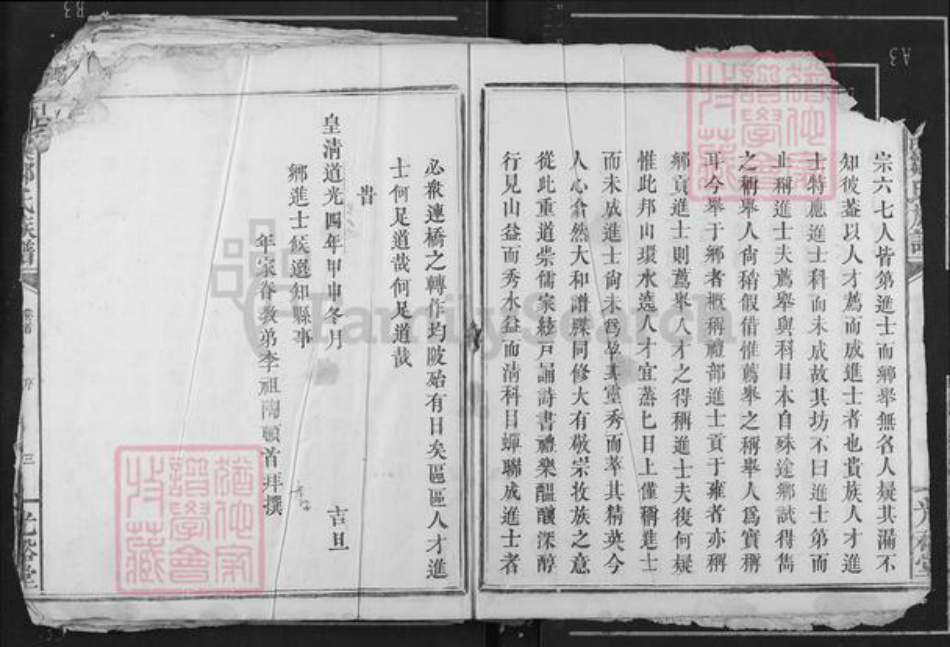 宗六七人皆第進士而鄉舉無名人疑其漏不
知彼蓋以人才薦而成進士者也貴族人才進
士特應進士科而未成故其坊不曰進士第而
止稱進士夫薦舉與科目本自殊途鄉試得雋
之稱舉人尙稍假借惟薦舉之稱舉人爲實稱
耳今舉于鄉者槪稱禮部進士貢于雍者亦稱
鄉貢進士則薦舉人才之得稱進士夫復何疑
惟此邦山環水遶人才宜蒸上日上僅稱進士
而未成進士尙未爲孕其靈秀而萃其精英今
人心翕然大和譜牒同修大有敬宗收族之意
從此重道崇儒家絃戸誦詩書禮樂醞釀深醇
行見山益而秀水益而淸科目蟬聯成進士者
必衆連橋之轉作均陂殆有日矣區區人才進
士何足道哉何足道哉
旹
皇清道光四年甲申冬月 吉旦
鄉進士候選知縣事
年家眷教弟李祖陶頓首拜撰
鄒氏族譜
卷首
序
三
光裕堂
FamilySearch
猶他家譜學會收藏
猶他家譜學會收藏
A3
B3